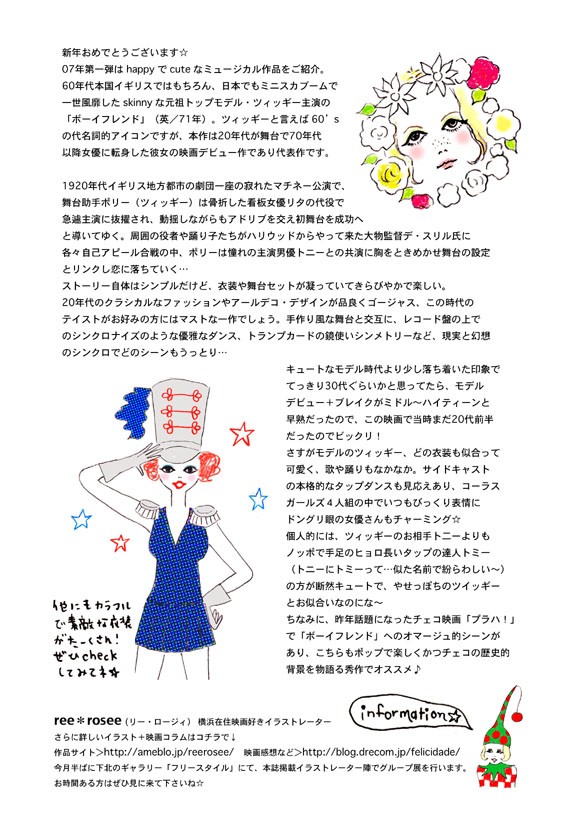 新年おめでとうございます☆
07年第一弾は happy で cute なミュージカル作品をご紹介。
60年代本国イギリスではもちろん、日本でもミニスカブームで
一世風靡した skinny な元祖トップモデル・ツィッギー主演の
「ボーイフレンド」（英／71年）。ツィッギーと言えば 60’s
の代名詞的アイコンですが、本作は20年代が舞台で70年代
以降女優に転身した彼女の映画デビュー作であり代表作です。
1920年代イギリス地方都市の劇団一座の寂れたマチネー公演で、
舞台助手ポリー（ツィッギー）は骨折した看板女優リタの代役で
急遽主演に抜擢され、動揺しながらもアドリブを交え初舞台を成功へ
と導いてゆく。周囲の役者や踊り子たちがハリウッドからやって来た大物監督デ・スリル氏に
各々自己アピール合戦の中、ポリーは憧れの主演男優トニーとの共演に胸をときめかせ舞台の設定
とリンクし恋に落ちていく…
ストーリー自体はシンプルだけど、衣装や舞台セットが凝っていてきらびやかで楽しい。
20年代のクラシカルなファッションやアールデコ・デザインが品良くゴージャス、この時代の
テイストがお好みの方にはマストな一作でしょう。手作り風な舞台と交互に、レコード盤の上で
のシンクロナイズのような優雅なダンス、トランプカードの鏡使いシンメトリーなど、現実と幻想
のシンクロでどのシーンもうっとり…
キュートなモデル時代より少し落ち着いた印象で
てっきり30代ぐらいかと思ってたら、モデル
デビュー＋ブレイクがミドル〜ハイティーンと
早熟だったので、この映画で当時まだ20代前半
だったのでビックリ！
さすがモデルのツィッギー、どの衣装も似合って
可愛く、歌や踊りもなかなか。サイドキャスト
の本格的なタップダンスも見応えあり、コーラス
ガールズ４人組の中でいつもびっくり表情に
ドングリ眼の女優さんもチャーミング☆
個人的には、ツィッギーのお相手トニーよりも
ノッポで手足のヒョロ長いタップの達人トミー
（トニーにトミーって…似た名前で紛らわしい〜）
の方が断然キュートで、やせっぽちのツイッギー
とお似合いなのにな〜
ちなみに、昨年話題になったチェコ映画「プラハ！」
で「ボーイフレンド」へのオマージュ的シーンが
あり、こちらもポップで楽しくかつチェコの歴史的
背景を物語る秀作でオススメ♪
他にもカラフル
で素敵な衣装
がたーくさん！
ぜひcheck
してみてネ☆
information☆
ree＊rosee（リー・ロージィ） 横浜在住映画好きイラストレーター
さらに詳しいイラスト＋映画コラムはコチラで↓
作品サイト＞http://ameblo.jp/reerosee/ 映画感想など＞http://blog.drecom.jp/felicidade/
今月半ばに下北のギャラリー「フリースタイル」にて、本誌掲載イラストレーター陣でグループ展を行います。
お時間ある方はぜひ見に来て下さいね☆